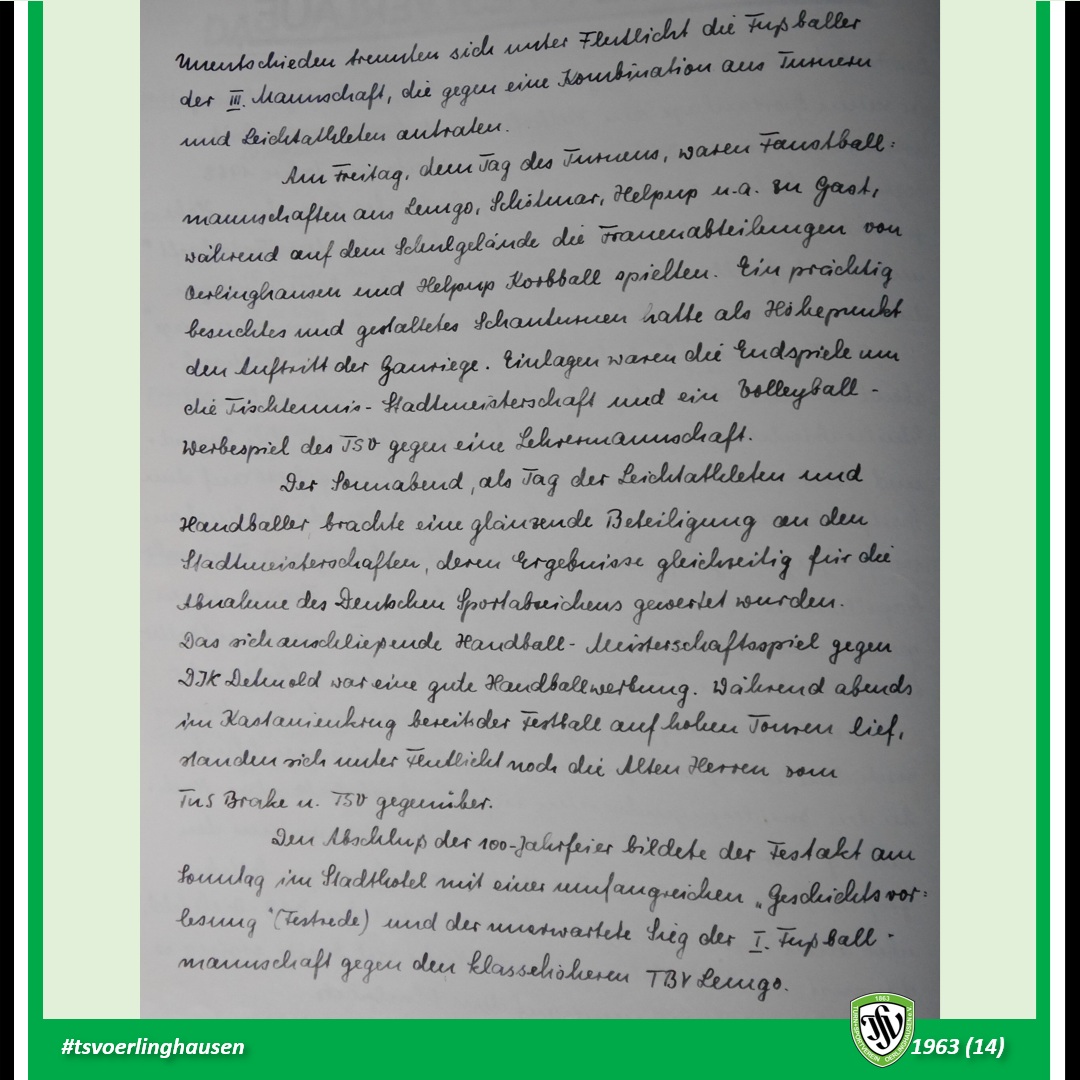 Unentschieden trennten sich unter Flutlicht die Fußballer
der III. Mannschaft, die gegen eine Kombination aus Turnern
und Leichtathleten antraten.
Am Freitag, dem Tag des Turnens, waren Faustball=
mannschaften aus Lemgo, Schötmar, Helpup u.a. zu Gast,
während auf dem Schulgelände die Frauenabteilungen von
Oerlinghausen und Helpup Korbball spielten. Ein prächtig
besuchtes und gestaltetes Schauturnen hatte als Höhepunkt
den Auftritt der Gauriege. Einlagen waren die Endspiele um
die Tischtennis-Stadtmeisterschaft und ein Volleyball-
Werbespiel des TSV gegen eine Lehrermannschaft.
Der Sonnabend, als Tag der Leichtathleten und
Handballer brachte eine glänzende Beteiligung an den
Stadtmeisterschaften, deren Ergebnisse gleichzeitig für die
Abnahme des Deutschen Sportabzeichens gewertet wurden.
Das sich anschließende Handball-Meisterschaftsspiel gegen
DJK Detmold war eine gute Handballwerbung. Während abends
im Kastanienkrug bereits der Festball auf hohen Touren lief,
standen sich unter Flutlicht noch die Alten Herren vom
TuS Brake u. TSV gegenüber.
Den Abschluß der 100-Jahrfeier bildete der Festakt am
Sonntag im Stadthotel mit einer umfangreichen „Geschichtsvor=
lesung" (Festrede) und der unerwartete Sieg der I. Fußball-
mannschaft gegen den klassehöheren TBV Lemgo.
#tsvoerlinghausen
1863
TSV
TURN- SPORTVEREIN OERLINGHAUSEN
1963 (14)